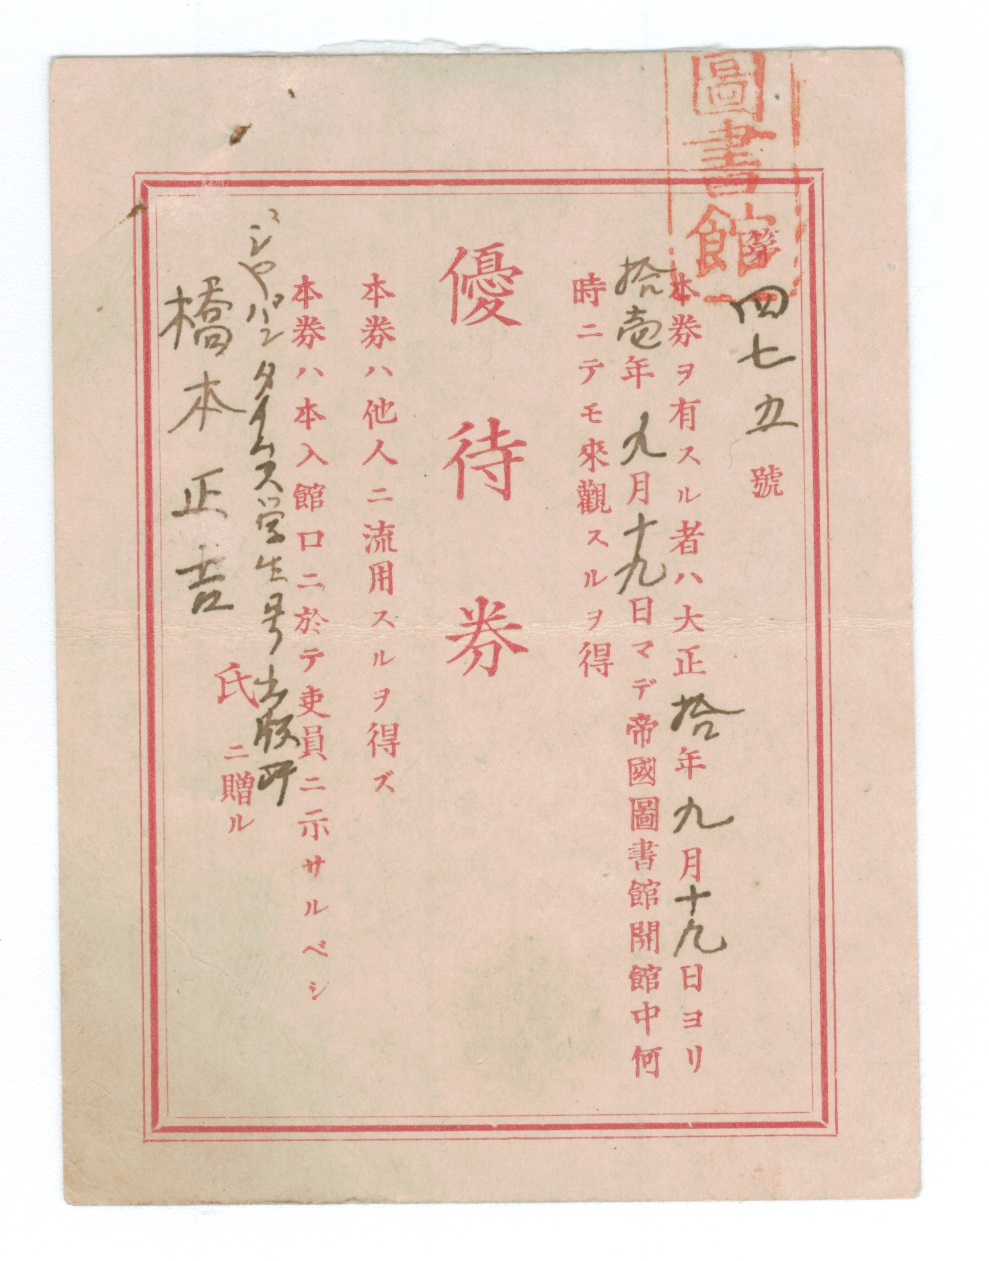 圖書館
第四七五號
本券ヲ有スル者ハ大正拾年九月十九日ヨリ
拾壱年九月十九日マデ帝國圖書館開館中何
時ニテモ來觀スルヲ得
優待券
本券ハ他人ニ流用スルヲ得ズ
本券ハ本入館口ニ於テ吏員ニ示サルベシ
ジャパンタイムス学生号出版所
橋本正吉
氏ニ贈ル